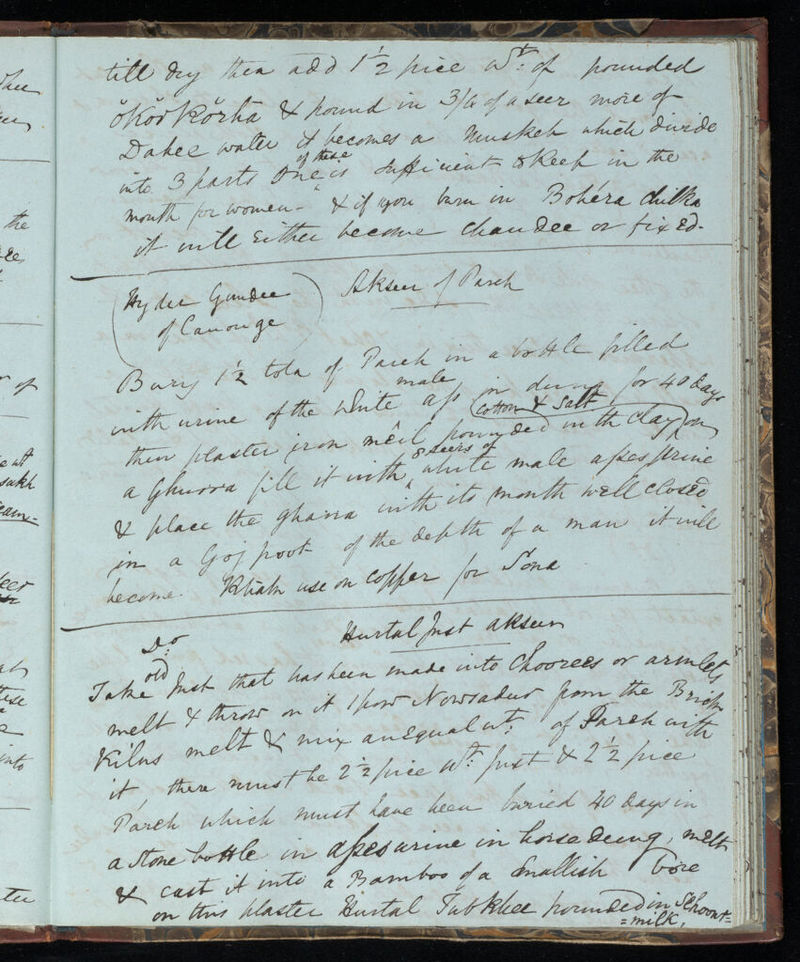 till dry then add 1½ pice Wt. of pounded
ŏKŏŏKŏrha & pound in 3/4 of a seer more of
Dahee water it becomes a Muskeh which divide
of these
into 3 parts One is sufficient to Keep in the
month for women - & if you burn in Bohéra chilka
it will Either become Chaundee or fixed.
Hyder Gundee
of Canouge
Akseer of Parch
Bury 1½ tola of Pareh in a bottle filled
male
with urine of the White Ass in dung for 40 days
cotton & Salt
then plaster iron mêil pounded with Clay on
8 Seers of
a Ghurra fill it with white male asses urine
& place the gharra with its mouth well closed
in a Goz poot of the depth of a man it will
become Kham use on Copper for Sona
Do. Hurtal Just akseer
old
Take Just that has been made into Choorees or armlets
melt & throw on it 1 pow Nowsadur from the Brick
Kilns melt & mix an Equal wt. of Pareh with
it there must be 2½ pice Wt. Just & 2½ pice
Pareh which must have been buried 40 days in
a Stone bottle in asses urine in horse deung, melt
& cast it into a Bamboo of a Smallish bore
on this plaster Hurtal Tubkhee pounded in
=milk,